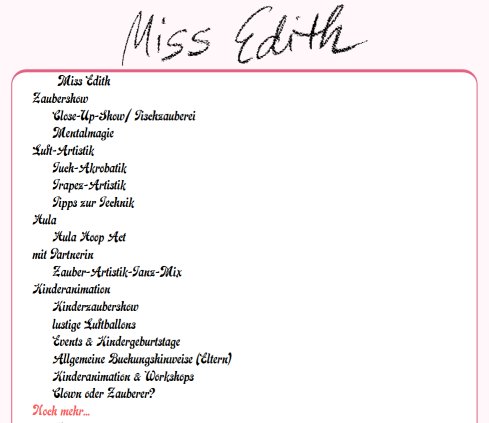 Miss Edith
Miss Edith
Zaubershow
Close-Up-Show/ Tischzauberei
Mentalmagie
Luft-Artistik
Tuch-Akrobatik
Trapez-Artistik
Tipps zur Technik
Hula
Hula Hoop Act
mit Partnerin
Zauber-Artistik-Tanz-Mix
Kinderanimation
Kinderzaubershow
lustige Luftballons
Events & Kindergeburtstage
Allgemeine Buchungshinweise (Eltern)
Kinderanimation & Workshops
Clown oder Zauberer?
Noch mehr...